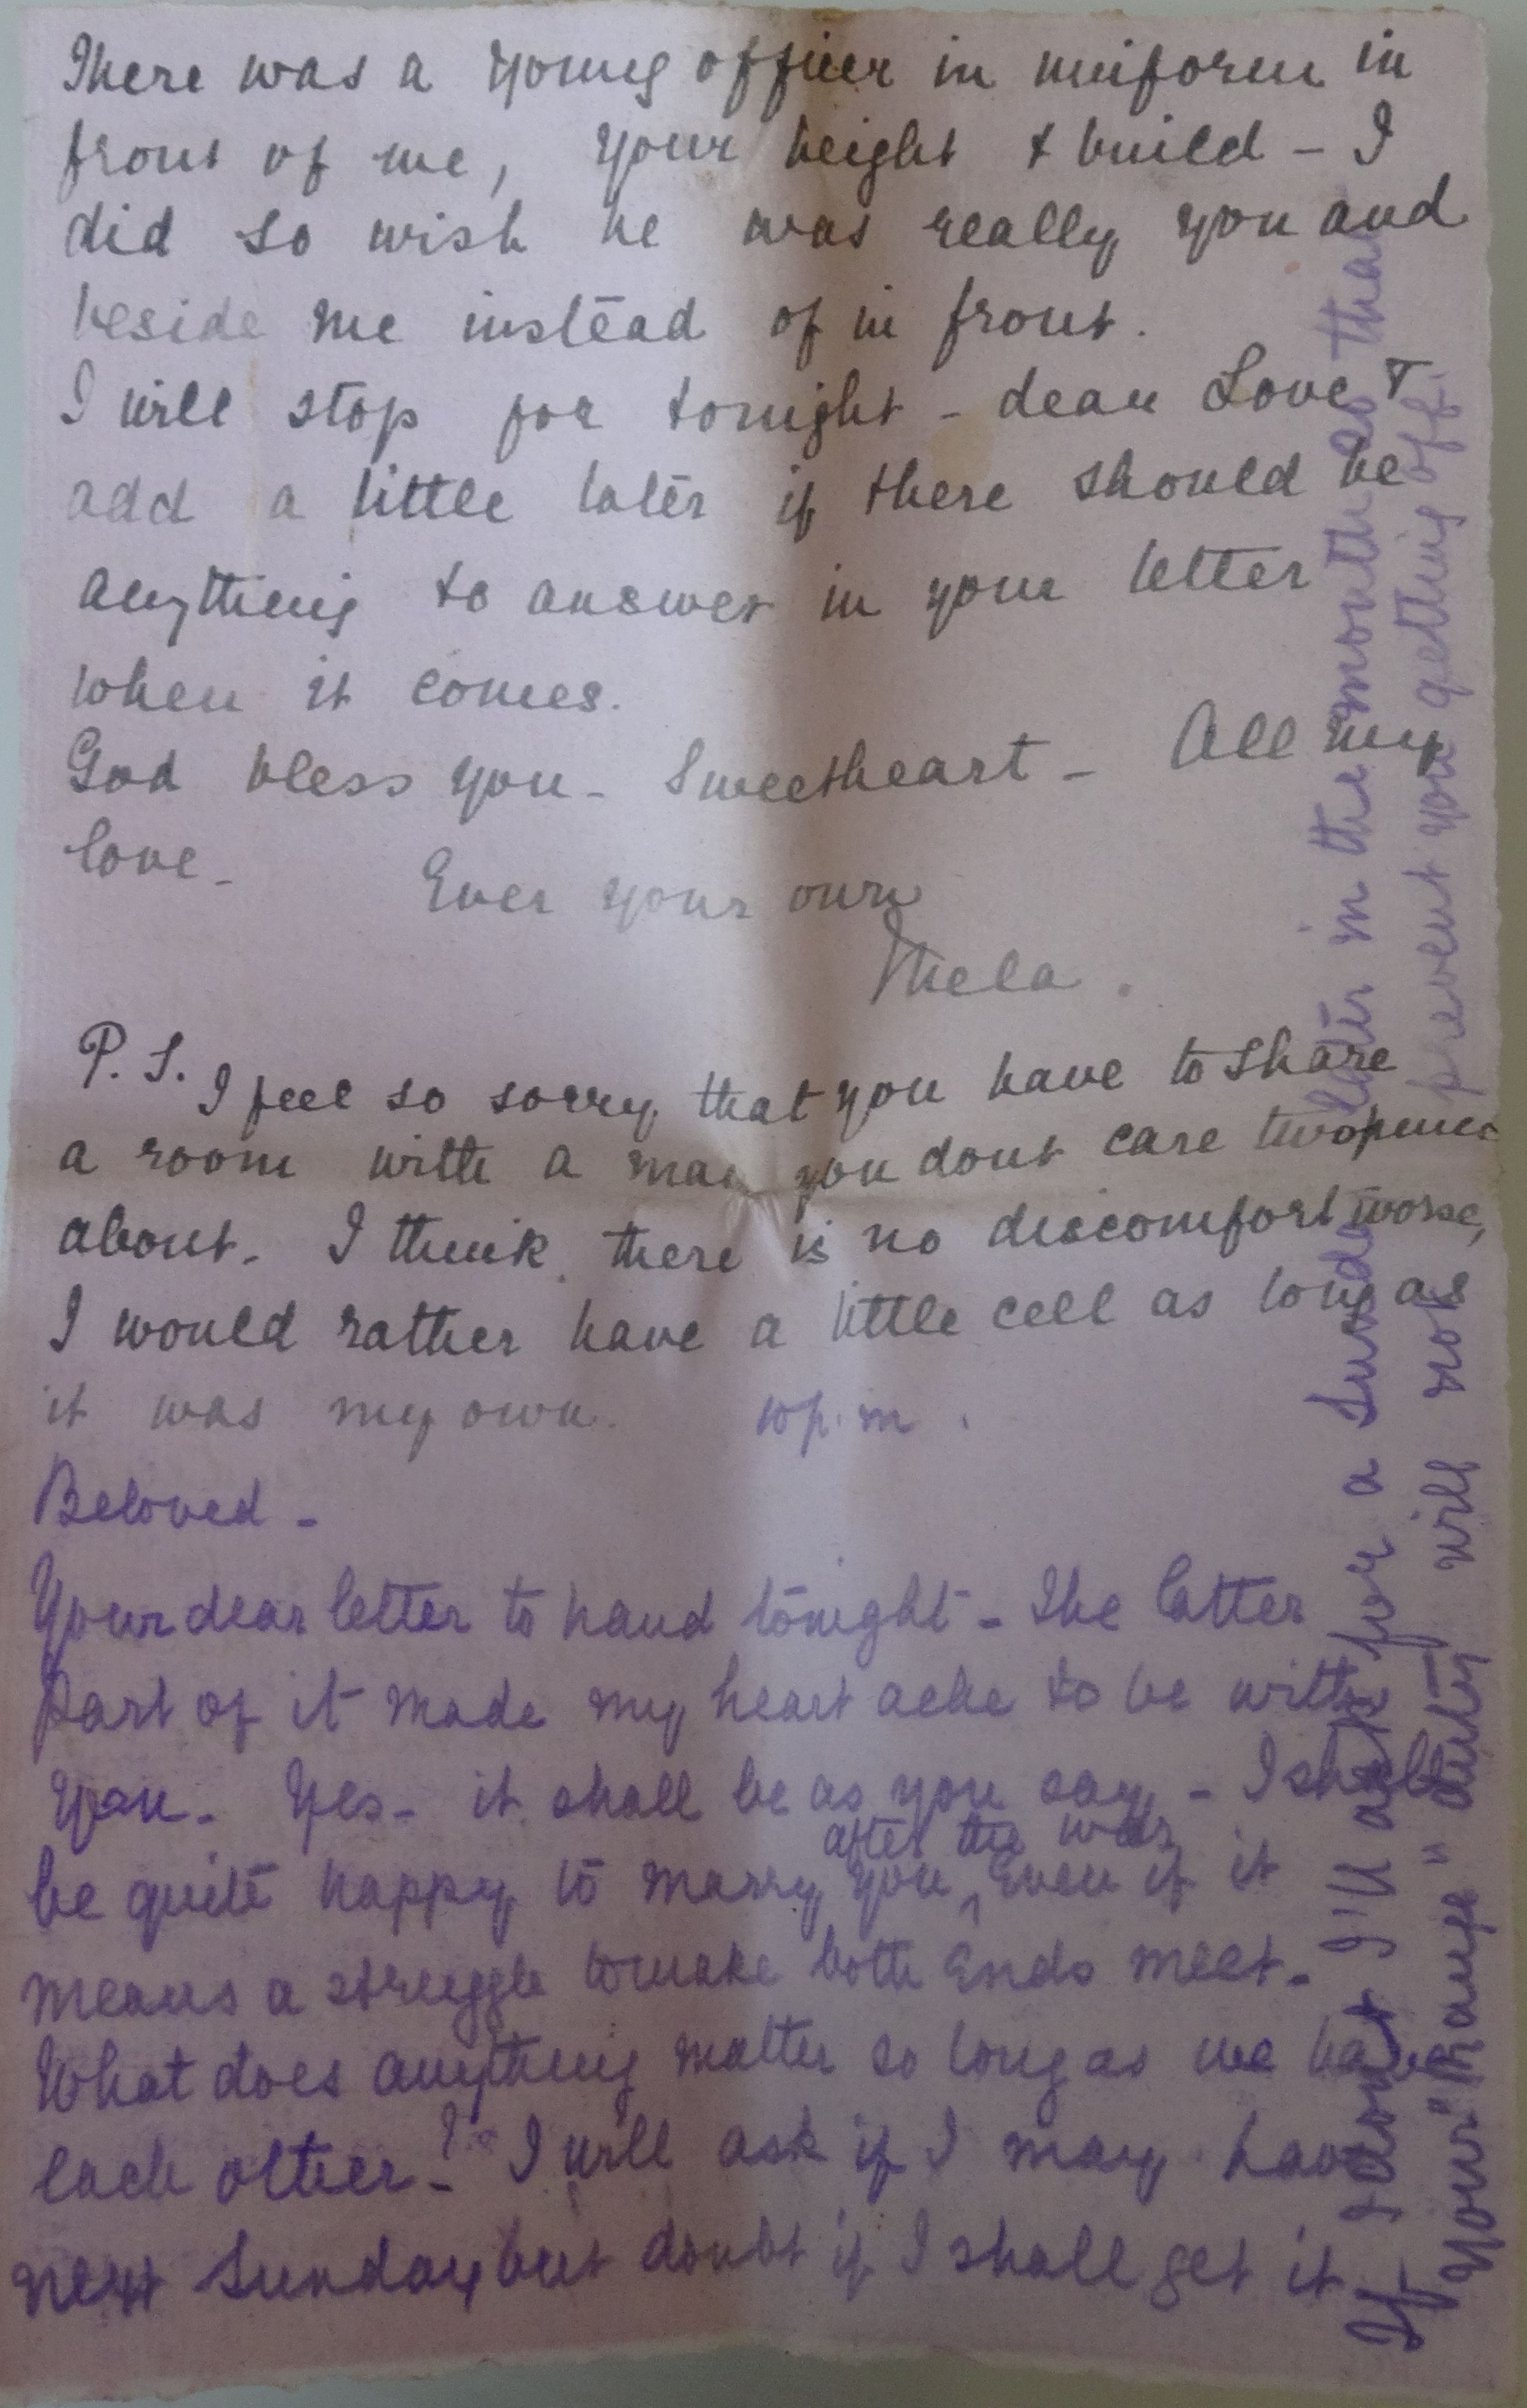 There was a young officer in uniform in
front of me, your height & build - I
did so wish he was really you and
beside me instead of in front.
I will stop for tonight - dear Love &
add a little later if there should be
anything to answer in your letter
when it comes.
God bless you - Sweetheart - All my
love -
Ever your own
Thela.
P.S. I feel so sorry that you have to share
a room with a man you dont care twopence
about. I think there is no discomfort worse,
I would rather have a little cell as long as
it was my own.
10 p.m.
Beloved -
Your dear letter to hand tonight - The latter
part of it made my heart ache to be with
you - Yes - it shall be as you say - I shall
after the war
be quite happy to marry you ^ even if it
means a struggle to make both ends meet -
What does anything matter so long as we have
each other -? I will ask if I may have
next Sunday but doubt if I shall get it
If I dont I'll ask for a Sunday later in the month so that
your "mange" duty will not prevent you getting off.